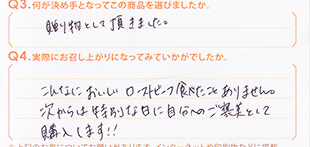 Q3.何が決め手となってこの商品を選びましたか。
贈り物として頂きました。
Q4.実際にお召し上がりになってみていかがでしたか。
こんなにおいしいローストビーフ食べたことありません。
次からは特別な日に自分へのご褒美として
購入します!!